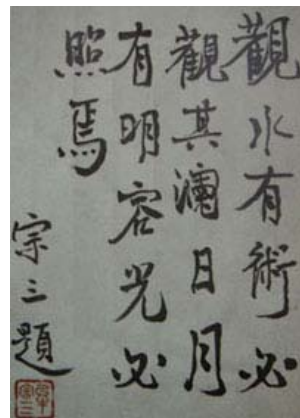 觀水有術必
觀其瀾日月
有明容光必
照焉
宗三題